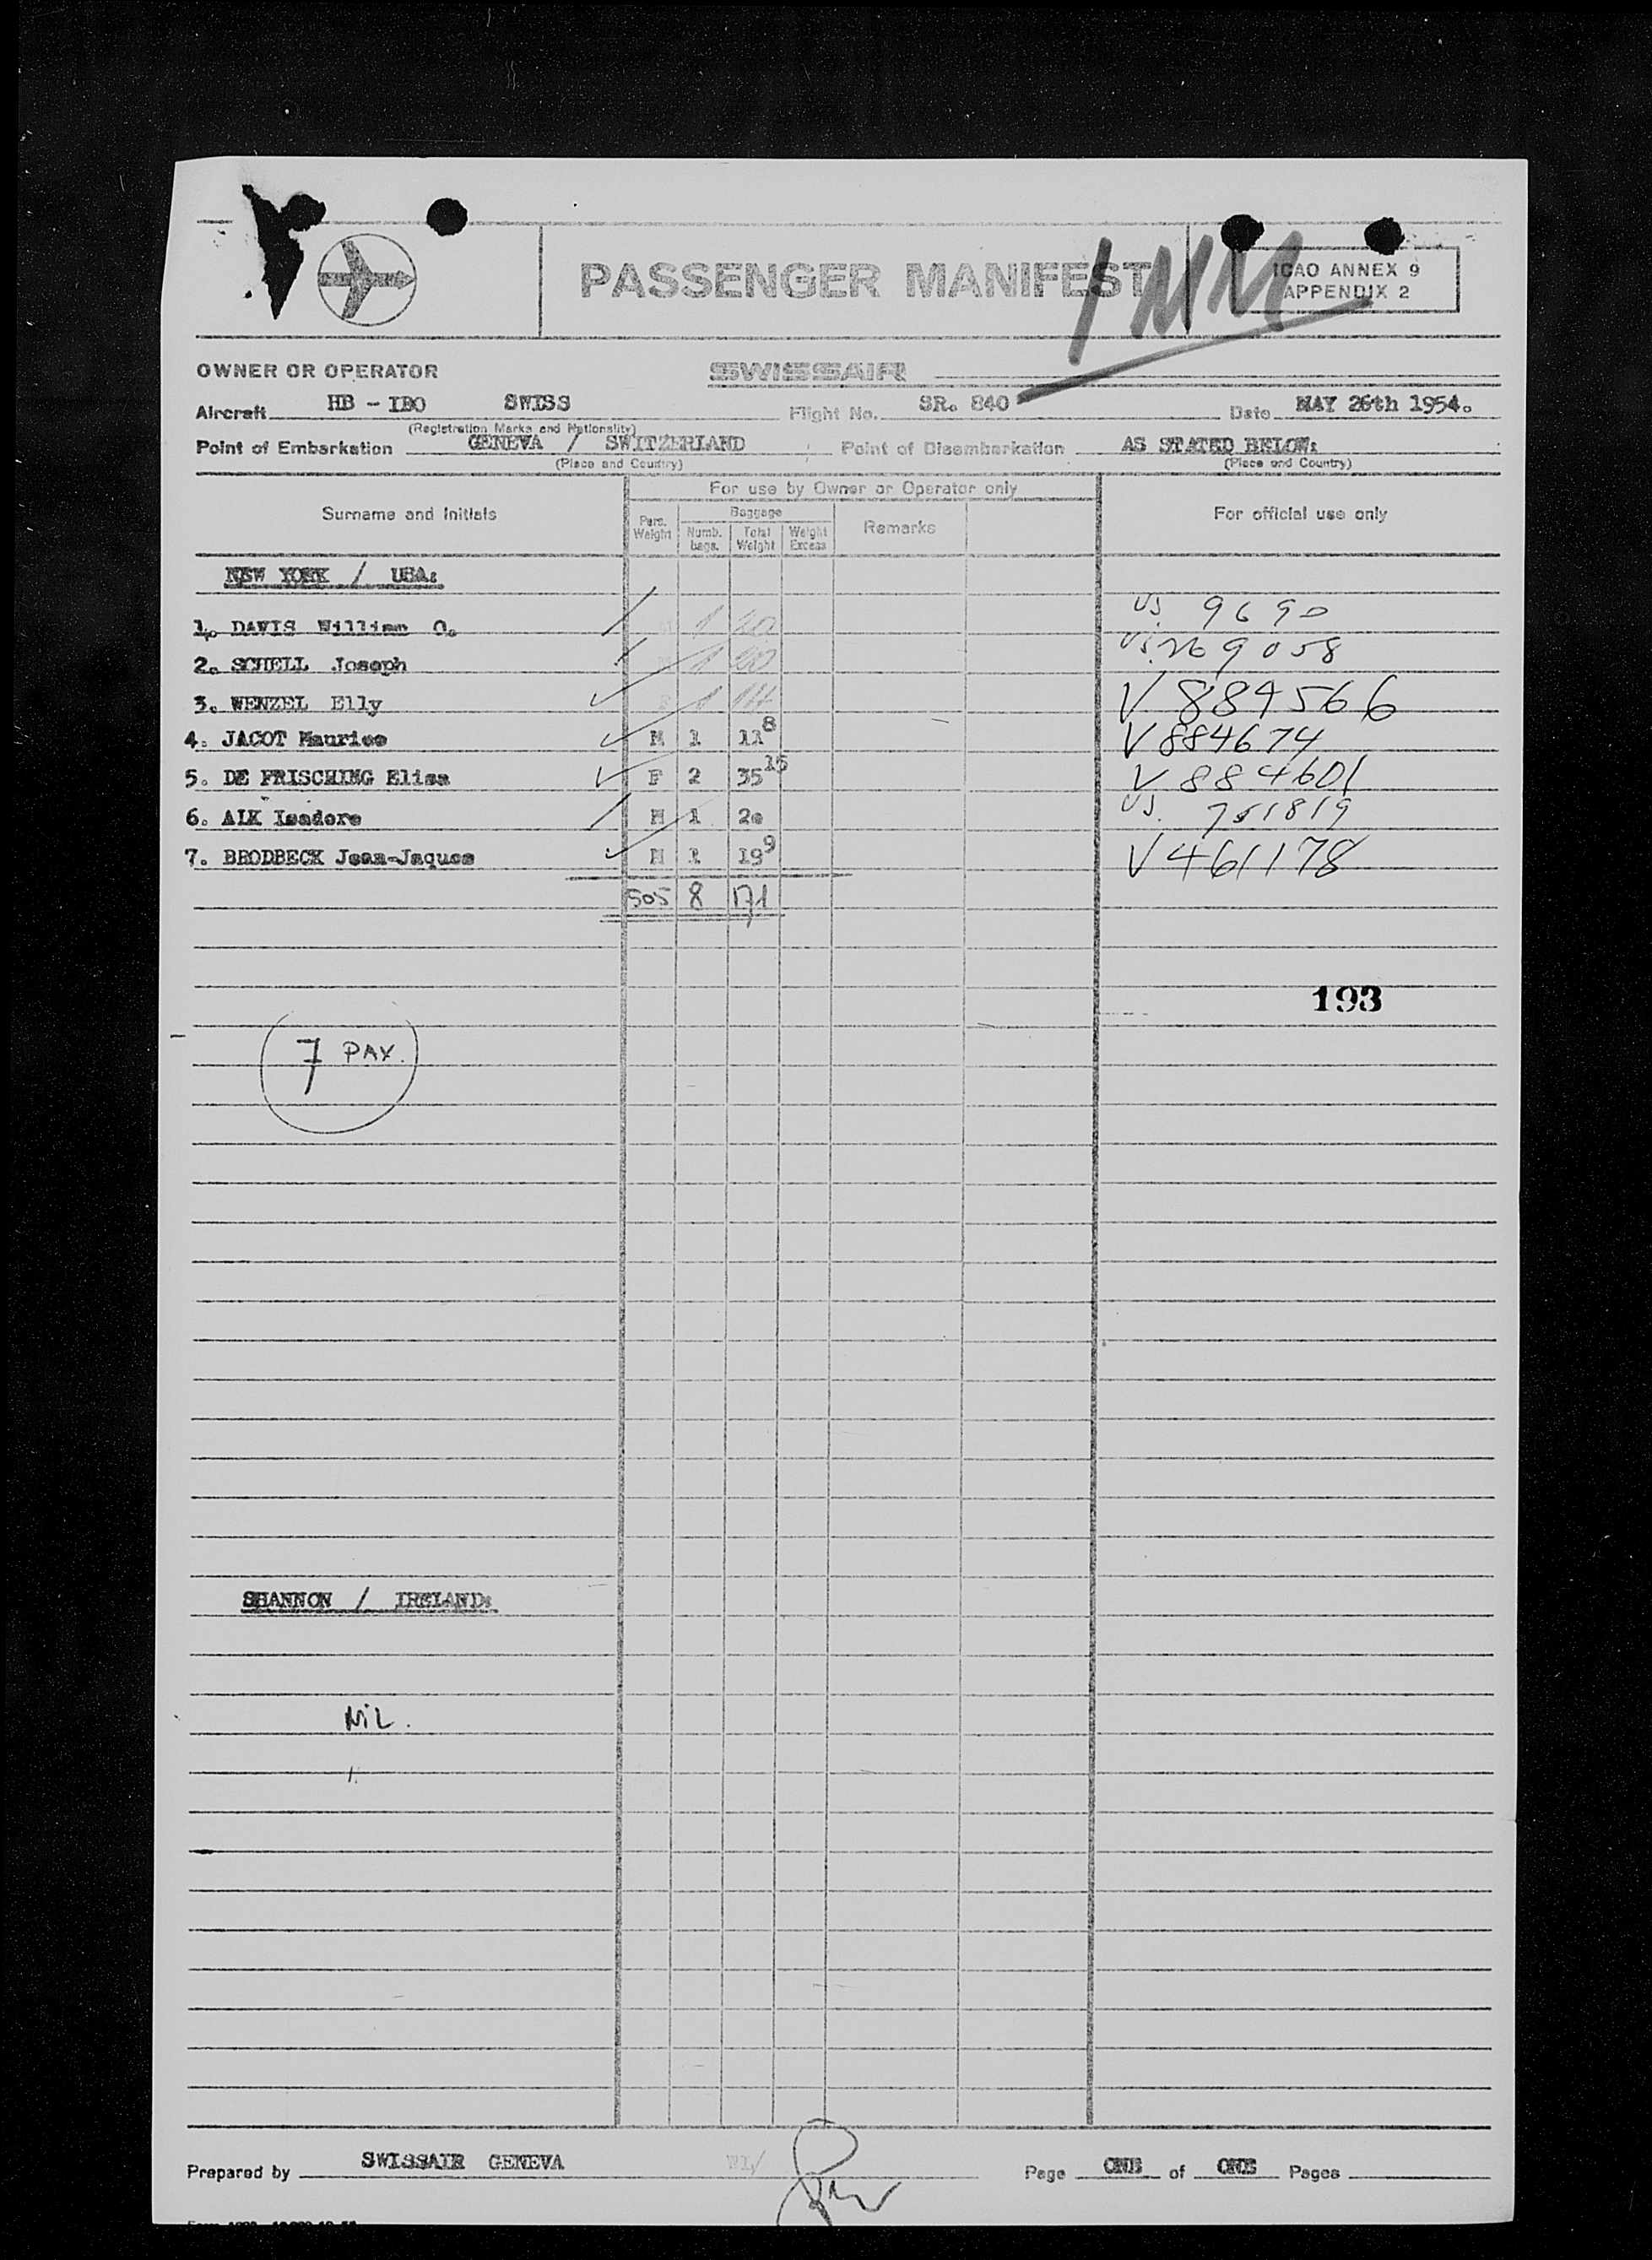 PASSENGER MANIFEST
1 MM
ICAO ANNEX 9
APPENDIX 2
OWNER OR OPERATOR SWISSAIR
Aircraft HB - IBO SWISS Flight No. SR. 840 Date MAY 26th 1954.
(Registration Marks and Nationality)
Point of Embarkation GENEVA / SWITZERLAND Point of Disembarkation AS STATED BELOW:
(Place and Country) (Place and Country)
For use by Owner or Operator only
Surname and Initials Pers. Weight Baggage Numb. bags. Total Weight Weight Excess Remarks For official use only
NEW YORK / USA:
1. DAVIS William O. 1 20 US 9690
2. SCHELL Joseph 1 20 US 269058
3. WENZEL Elly F 1 V 884566
4. JACOT Maurice M 1 11 8 V 884674
5. DE FRISCHING Elisa F 2 35 15 V 884601
6. AIK Isadore M 1 20 US. 751819
7. BRODBECK Jean-Jaques M 1 19 9 V 461178
505 8 171
193
7 PAX.
SHANNON / IRELAND:
NIL.
Prepared by SWISSAIR GENEVA Page ONE of ONE Pages